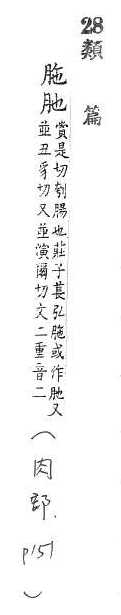 28類篇
胣肔賞是切刳腸也莊子萇弘胣或作肔又
並丑豸切又並演爾切文二重音二
(肉部.p151)